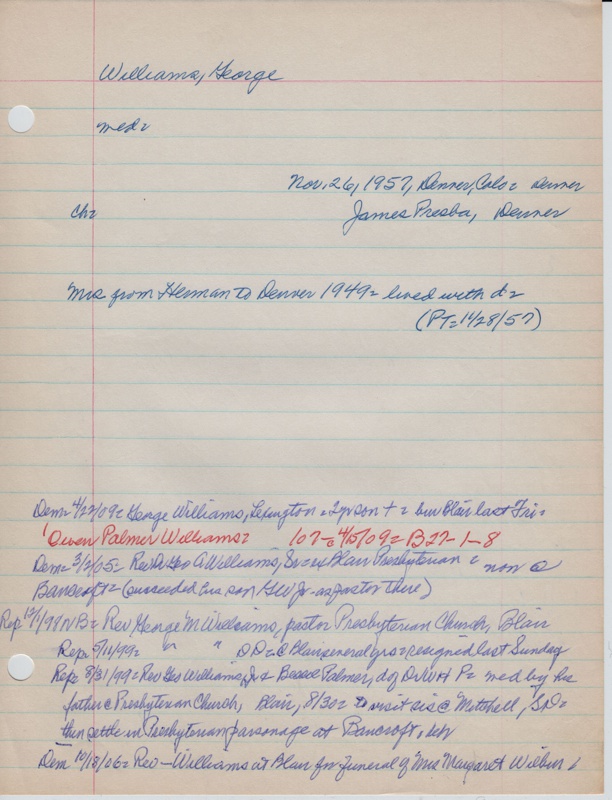 Williams, George
med=
Nov. 26, 1957, Denver, Colo= Denver
Ch=
James Presba, Denver
Mrs from Herman to Denver 1949= lived with d=
(PT= 11/28/57)
Dem= 4/22/09= George Williams, Lexington = 2 yr son + = bur Blair last Fri=
Owen Palmer Williams= 107= 4/15/09= B27-1-8
Dem= 3/2/05= Rev Dr Geo A Williams, Sr= ex Blair Presbyterian = now @
Bancroft= (succeeded his son GW Jr. as pastor there)
Rep 12/1/98 NB= Rev George M Williams, pastor Presbyterian Church, Blair
Rep= 5/11/99= " " DD= @ Blair several yrs= resigned last Sunday
Rep= 8/31/99= Rev Geo Williams, Jr & Bessie Palmer, d of Dr WH P= med by his
father @ Presbyterian Church, Blair, 8/30= to visit sis @ Mitchell, SD=
then settle in Presbyterian parsonage at Bancroft, Nb
Dem 10/18/06= Rev — Williams at Blair for funeral of Mrs Margaret Wilbur